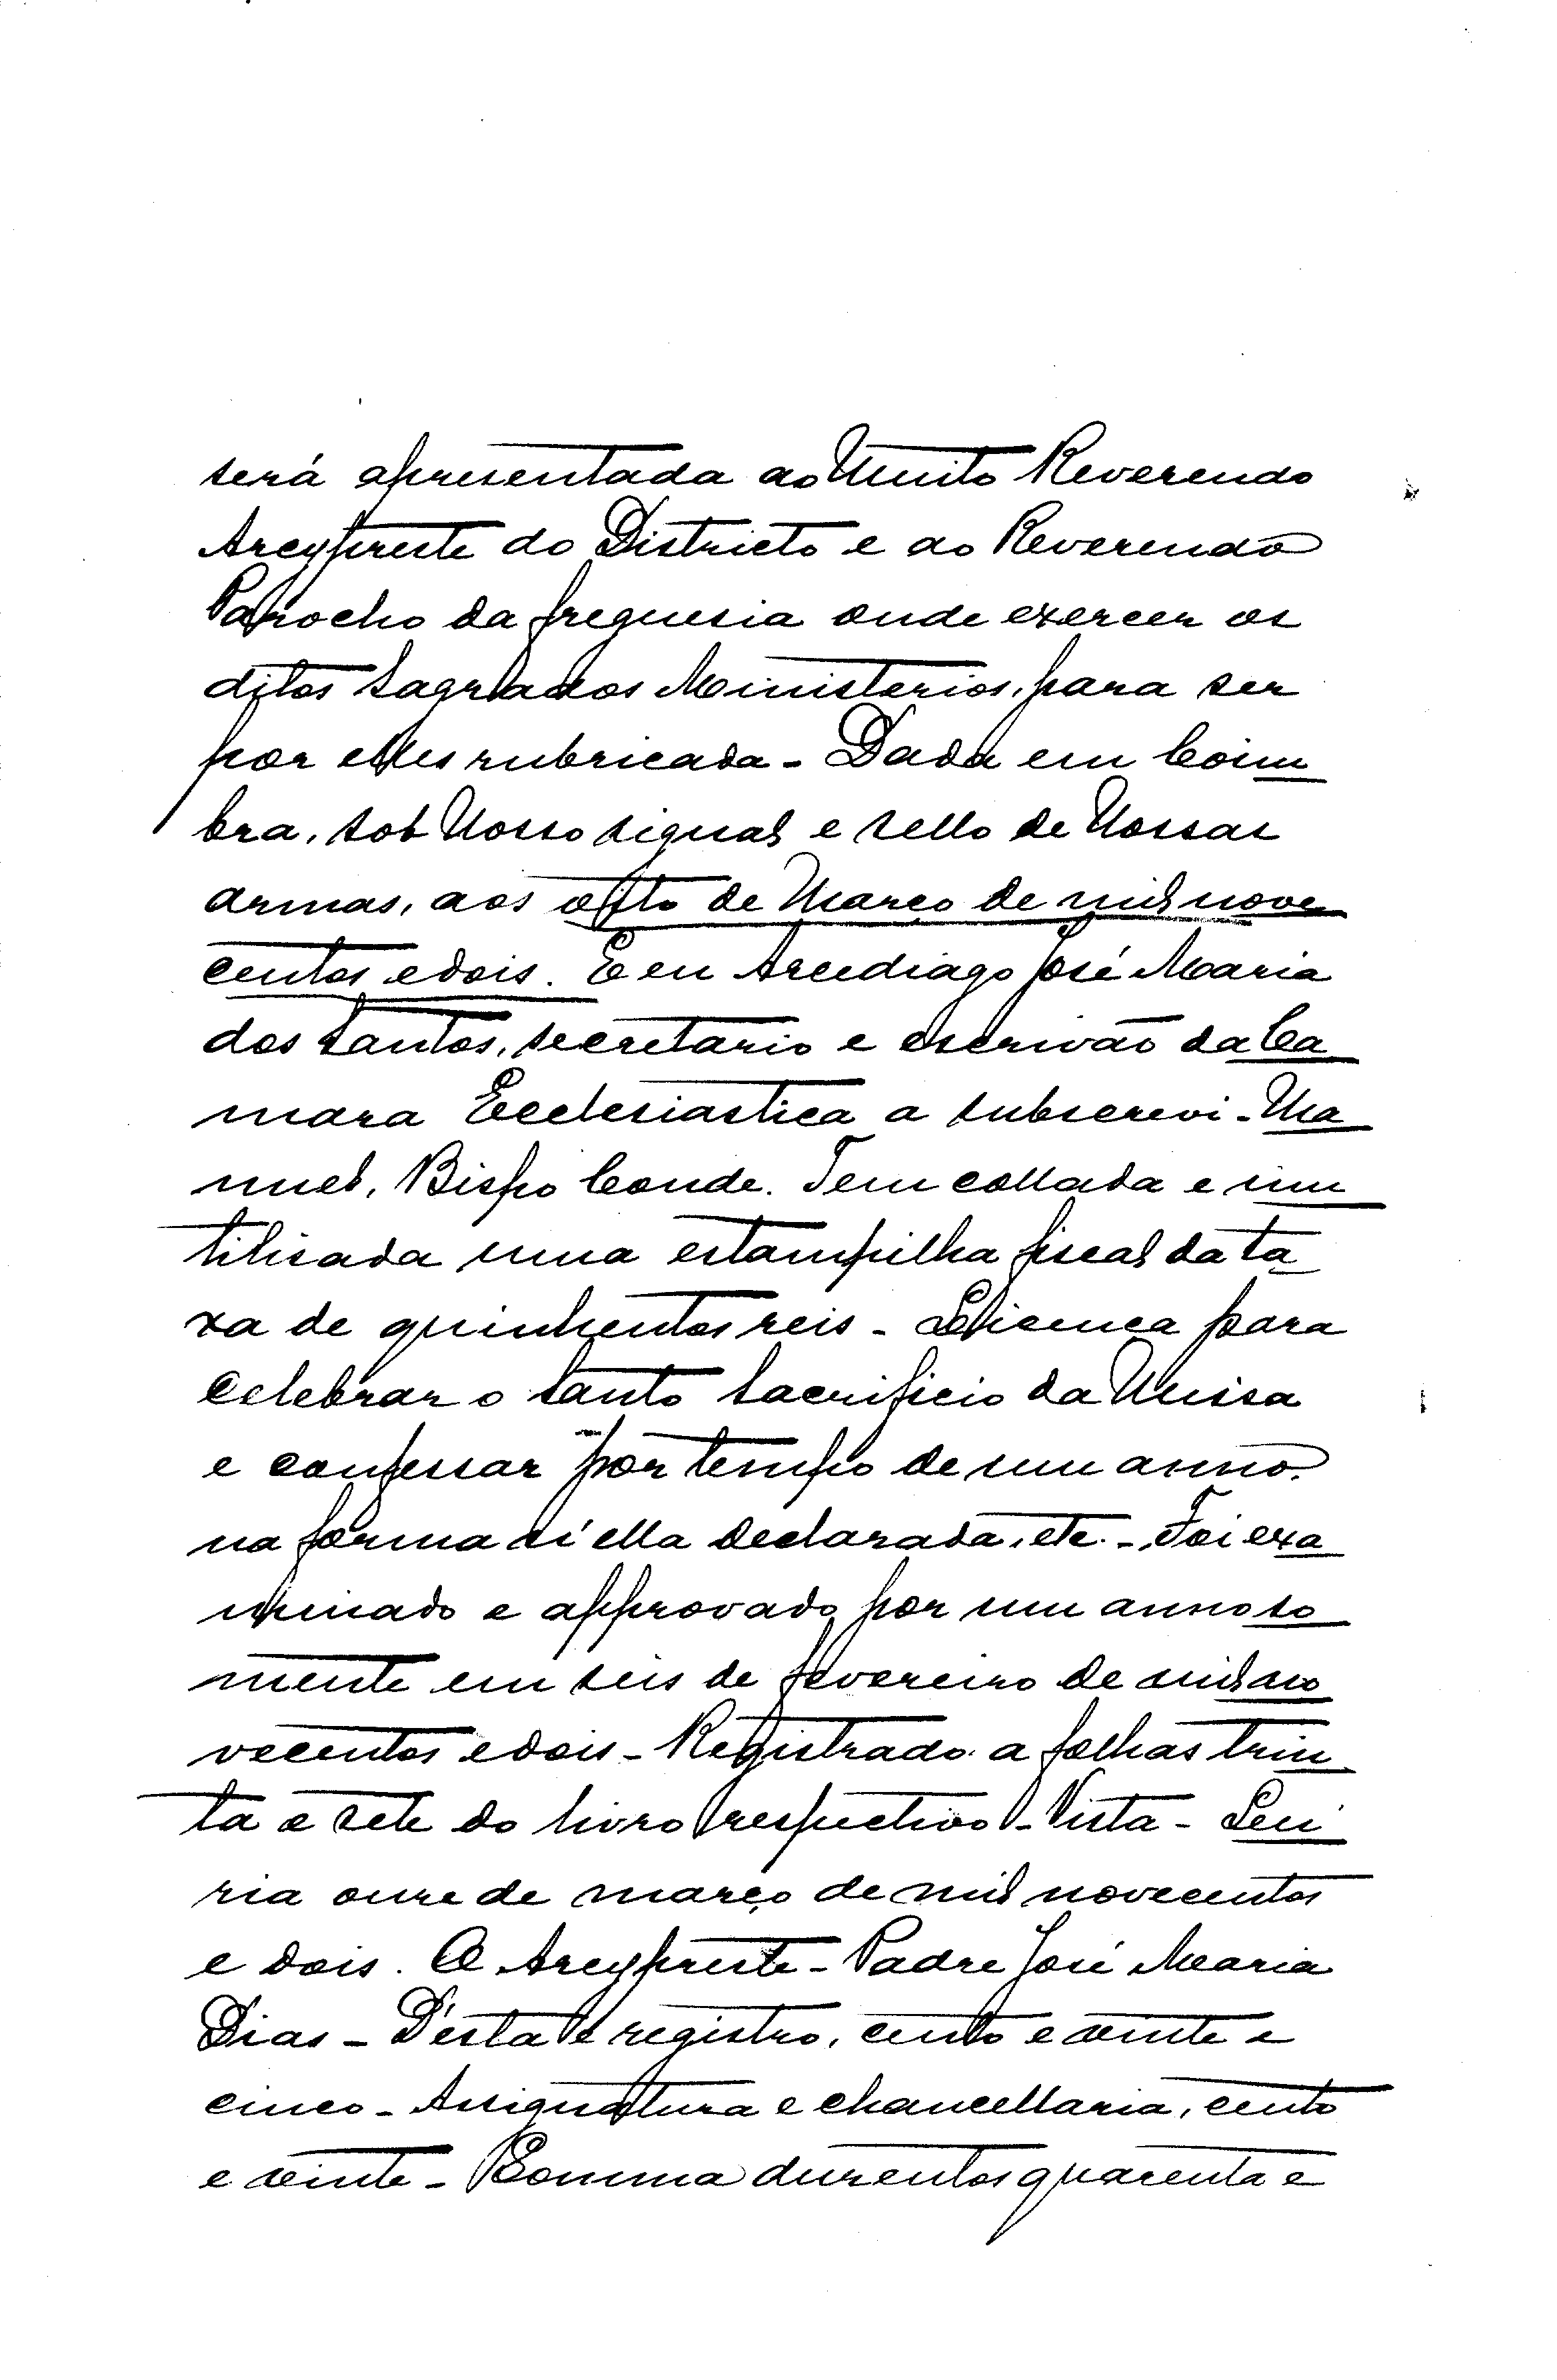 será apresentada ao Muito Reverendo
Arcypreste do Districto e ao Reverendo
Parocho da freguesia onde exercer os
ditos Sagrados Ministerios, para ser
por elles rubricada - Dada em Coim
bra, sob Nosso signal e sello de Nossas
armas, aos oito de Março de mil nove
centos e dois. E eu Arcediago José Maria
dos Santos, secretario e escrivão da Ca
mara Ecclesiastica a subscrevi - Ma
nuel, Bispo Conde. Tem collada e inu
tilisada uma estampilha fiscal da ta
xa de quinhentos reis - Licença para
celebrar o Santo Sacrificio da Missa
e confessar por tempo de um anno,
na forma n'ella declarada, etc. - Foi exa
minado e approvado por um anno so
mente em seis de fevereiro de mil no
vecentos e dois - Registrado a folhas trin
ta e sete do livro respectivo - Vista - Lei
ria onze de março de mil novecentos
e dois. O Arcypreste - Padre José Maria
Dias - D'esta e registro, cento e vinte e
cinco - Assignatura e chancellaria, cento
e vinte - Somma duzentos quarenta e